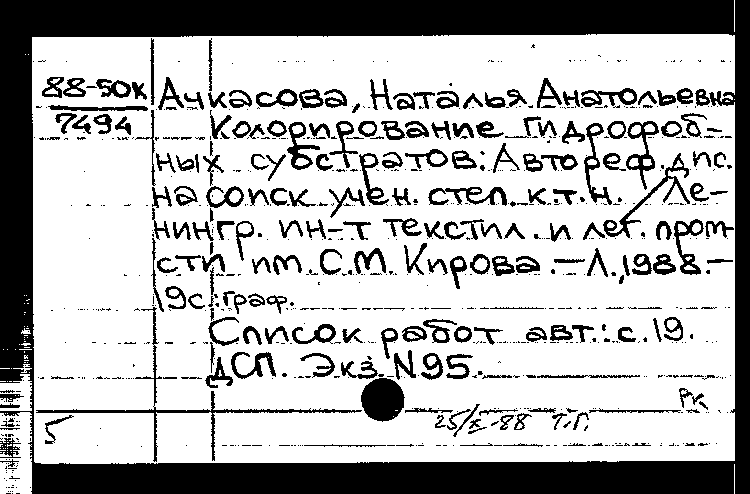 88-50К
7494
Ачкасова, Наталья Анатольевна
Колорирование гидрофоб-
ных субстратов: Автореф. дис.
на соиск учен. степ. к.т.н. / Ле-
нингр. ин-т текстил. и лег. пром-
сти им. С.М. Кирова. — Л., 1988. —
19с.: граф.
Список работ авт.: с. 19.
ДСП. Экз. N95.
РК
5
25/X-88 Т.Г.